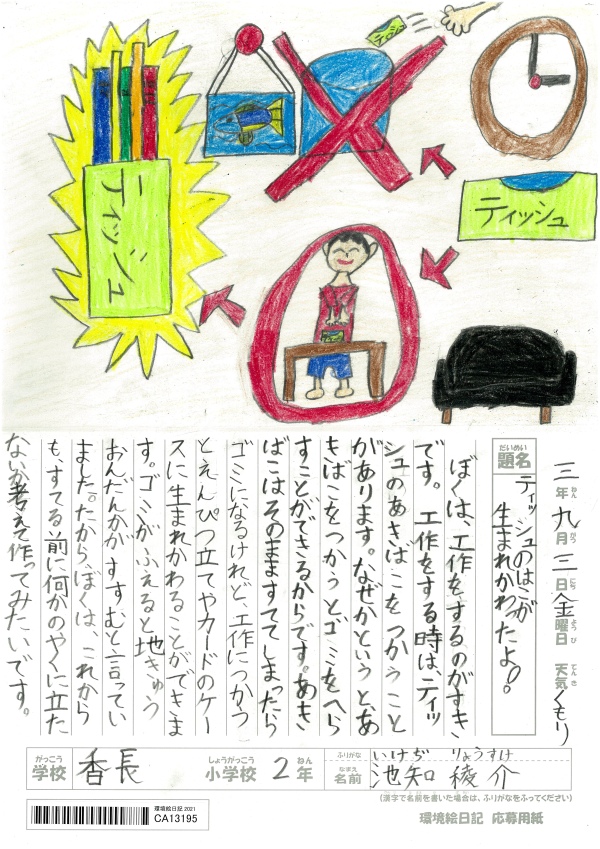 ティッシュ
ティッシュ
三年九月三日金曜日 天気くもり
ねん がつ にち ようび てんき
題名
だいめい
ティッシュのはこが
生まれかわったよ!。
ぼくは、工作をするのがすき
です。工作をする時は、ティッ
シュのあきばこをつかうこと
があります。なぜかというと、あ
きばこをつかうとゴミをへら
すことができるからです。あき
ばこはそのまますててしまったら
ゴミになるけれど、工作につかう
とえんぴつ立てやカードのケー
スに生まれかわることができま
す。ゴミがふえると地きゅう
おんだんかがすすむと言ってい
ました。だから、ぼくは、これから
も、すてる前に何かのやくに立た
ないか考えて作ってみたいです。
がっこう しょうがっこう ねん
学校 香長 小学校 2年
ふりがな いけぢ りょうすけ
なまえ
名前 池知 稜介
(漢字で名前を書いた場合は、ふりがなをふってください)
環境絵日記2021
CA13195
環境絵日記 応募用紙